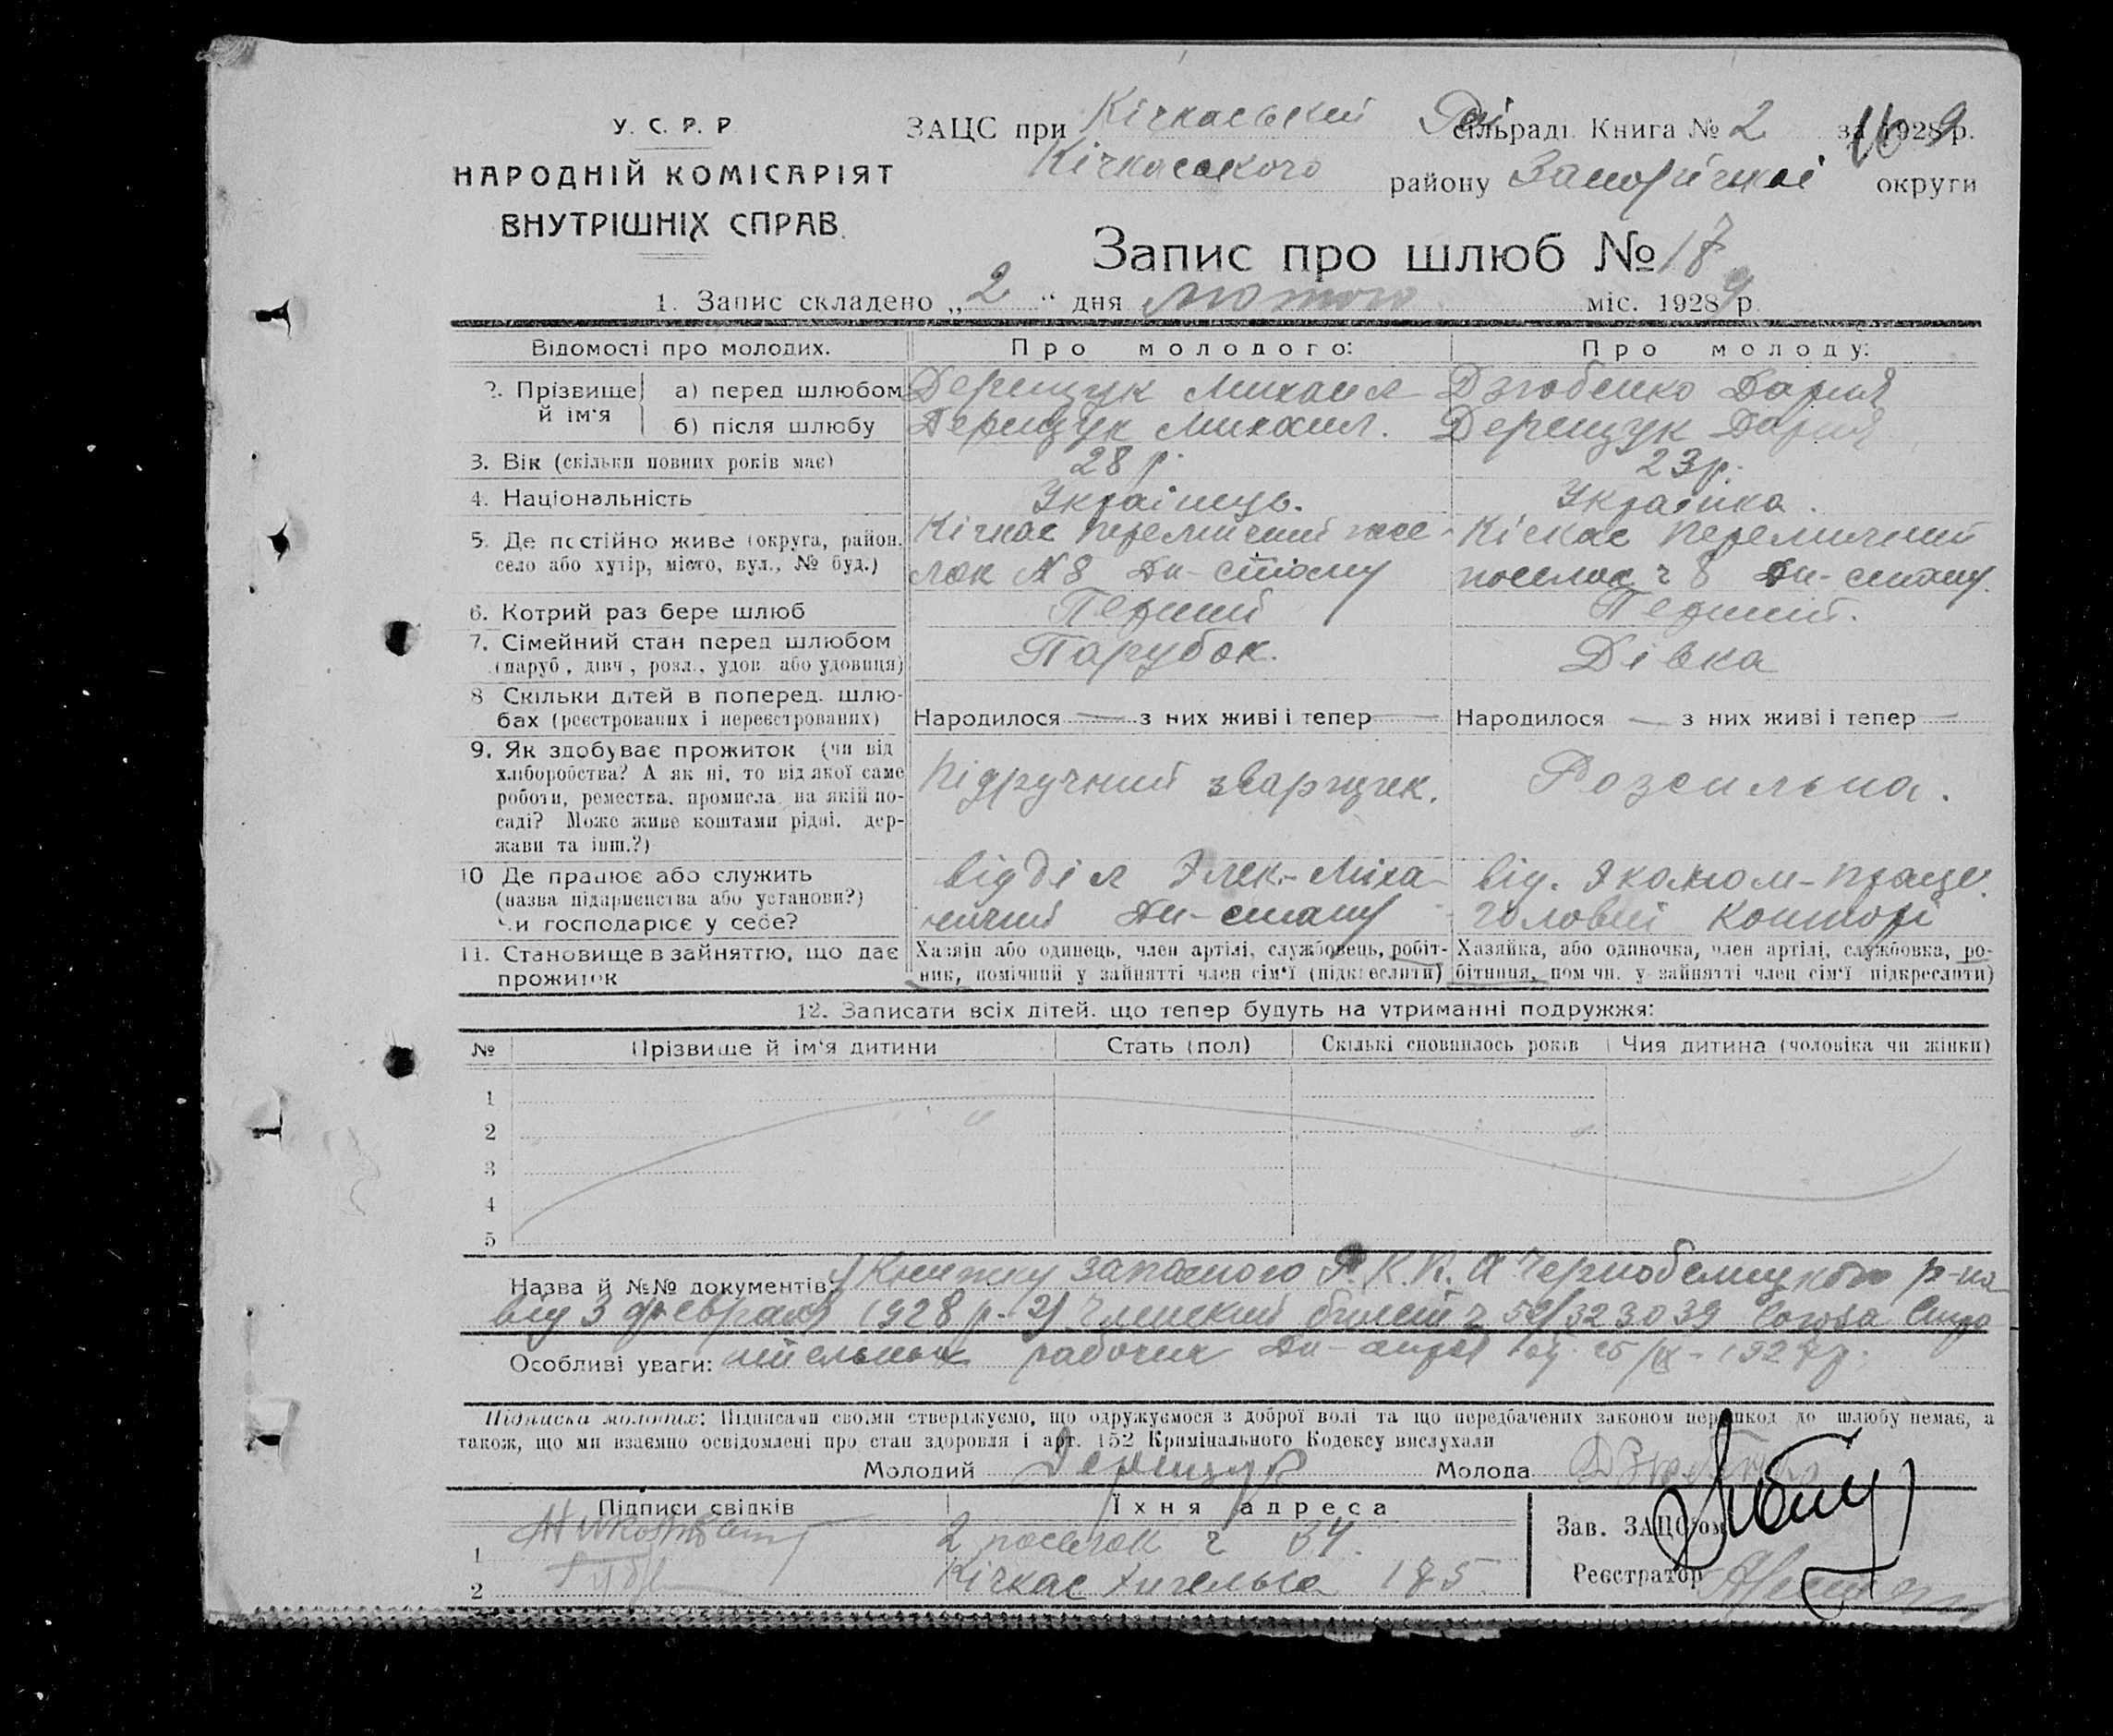 У. С. Р. Р.
НАРОДНІЙ КОМІСАРІЯТ
ВНУТРІШНІХ СПРАВ.
ЗАЦС при Кічкаський сільраді Книга № 2 за 1928 р.
Кічкаського району Запорізької округи
Запис про шлюб № 17
1. Запис складено „2“ дня лютого міс. 1929 р.
Відомості про молодих. Про молодого: Про молоду:
2. Прізвище й ім'я а) перед шлюбом Дерещук Михаил Дзюбенко Дария
б) після шлюбу Дерещук Михаил. Дерещук Дария
3. Вік (скільки повних років має) 28 р. 23 р.
4. Національність Українець. Українка.
5. Де постійно живе (округа, район, Кічкас Перемичний посе- Кічкас Перемичний
село або хутір, місто, вул., № буд.) лок № 8 Дн-стану поселок ч 8 Дн-стану.
6. Котрий раз бере шлюб Перший Перший.
7. Сімейний стан перед шлюбом Парубок. Дівка
(паруб., дівч., розл., удов. або удовиця)
8 Скільки дітей в поперед. шлю-
бах (реєстрованих і нереєстрованих) Народилося — з них живі і тепер — Народилося — з них живі і тепер —
9. Як здобуває прожиток (чи від
хліборобства? А як ні, то від якої саме Підручний зварщик. Розсильна.
роботи, ремества, промисла, на якій по-
саді? Може живе коштами рідні, дер-
жави та інш.?)
10 Де працює або служить відділ Элек.-Міха- від. Эконом-праце.
(назва підприєнства або установи?) ничний Дн-стану головній конторі
Чи господарює у себе?
11. Становище в зайняттю, що дає Хазяїн або одинець, член артілі, службовець, робіт- Хазяйка, або одиночка, член артілі, службовка, ро-
прожиток ник, помічний у зайнятті член сім'ї (підкреслити) бітниця, помічн. у зайнятті член сім'ї підкреслити)
12. Записати всіх дітей, що тепер будуть на утриманні подружжя:
№ Прізвище й ім'я дитини Стать (пол) Скількі сповнилось років Чия дитина (чоловіка чи жінки)
1
2
3
4
5
Назва й №№ документів: 1) Книжку запасного Р.К.К.А Чернобелицкого р-на
від 3 февраля 1928 р. 2) Членский билет ч 52/323039 Союза Строи
Особливі уваги: тельных рабочих Дн-
Підписка молодих: Підписами своїми стверджуємо, що одружуємося з доброї волі та що передбачених законом перешкод до шлюбу немає, а
також, що ми взаємно освідомлені про стан здоровля і арт. 152 Кримінального Кодексу вислухали
Молодий Дерещук Молода Дзюбенко
Підписи свідків Їхня адреса
1 2 поселок ч 34. Зав. ЗАЦС'ом
2 Кічкас Енгельса 175. Реєстратор